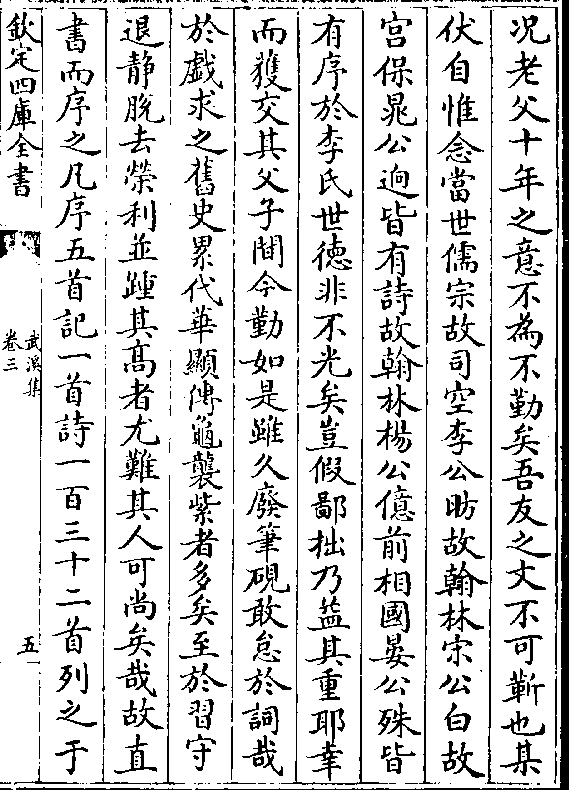 况老父十年之意不為不勤矣吾友之文不可靳也某
伏自惟念當世儒宗故司空李公昉故翰林宋公白故
宫保晁公逈皆有詩故翰林楊公億前相國晏公殊皆
有序於李氏世徳非不光矣豈假鄙拙乃益其重耶幸
而獲交其父子間今勤如是雖久廢筆硯敢怠於詞哉
於戯求之舊史累代華顯傳龜襲紫者多矣至於習守
退静脱去榮利並踵其髙者尤難其人可尚矣哉故直
書而序之凡序五首記一首詩一百三十二首列之于
欽定四庫全書
武溪集
卷三
五